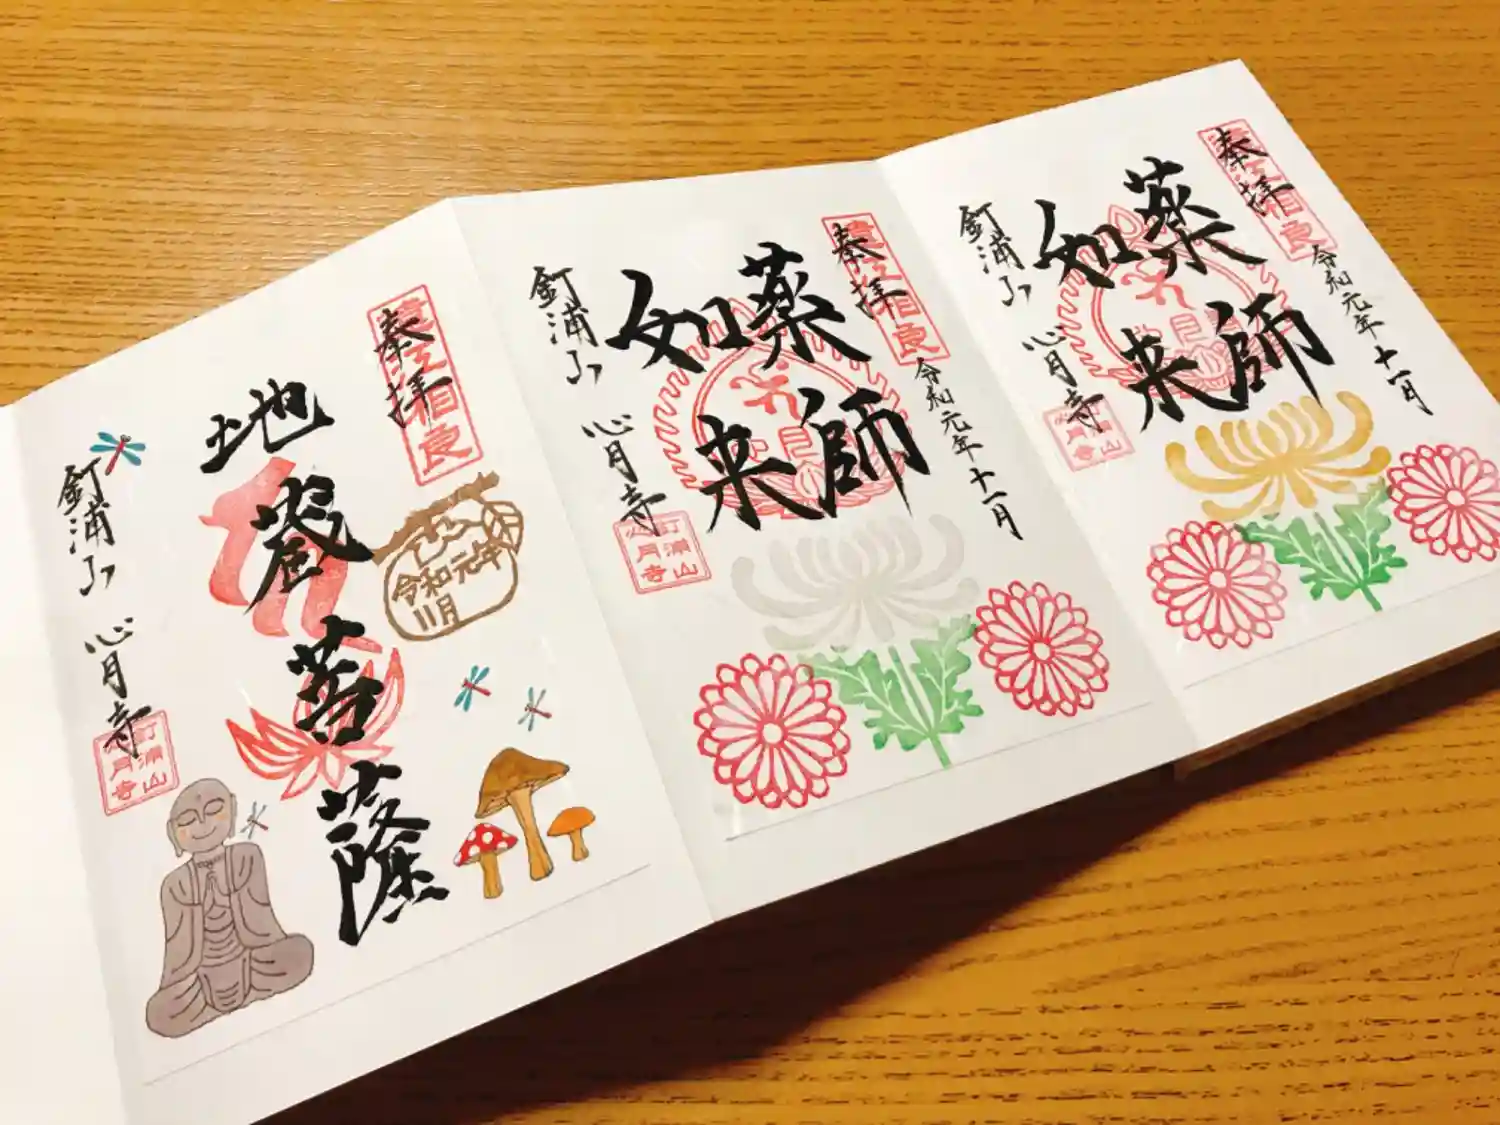 奉拝
令和元年十一月
薬師
如来
釘浦山 心月寺
釘浦山
心月寺
奉拝
令和元年十一月
薬師
如来
釘浦山 心月寺
釘浦山
心月寺
奉拝
令和元年
11月
地蔵菩薩
釘浦山 心月寺
釘浦山
心月寺